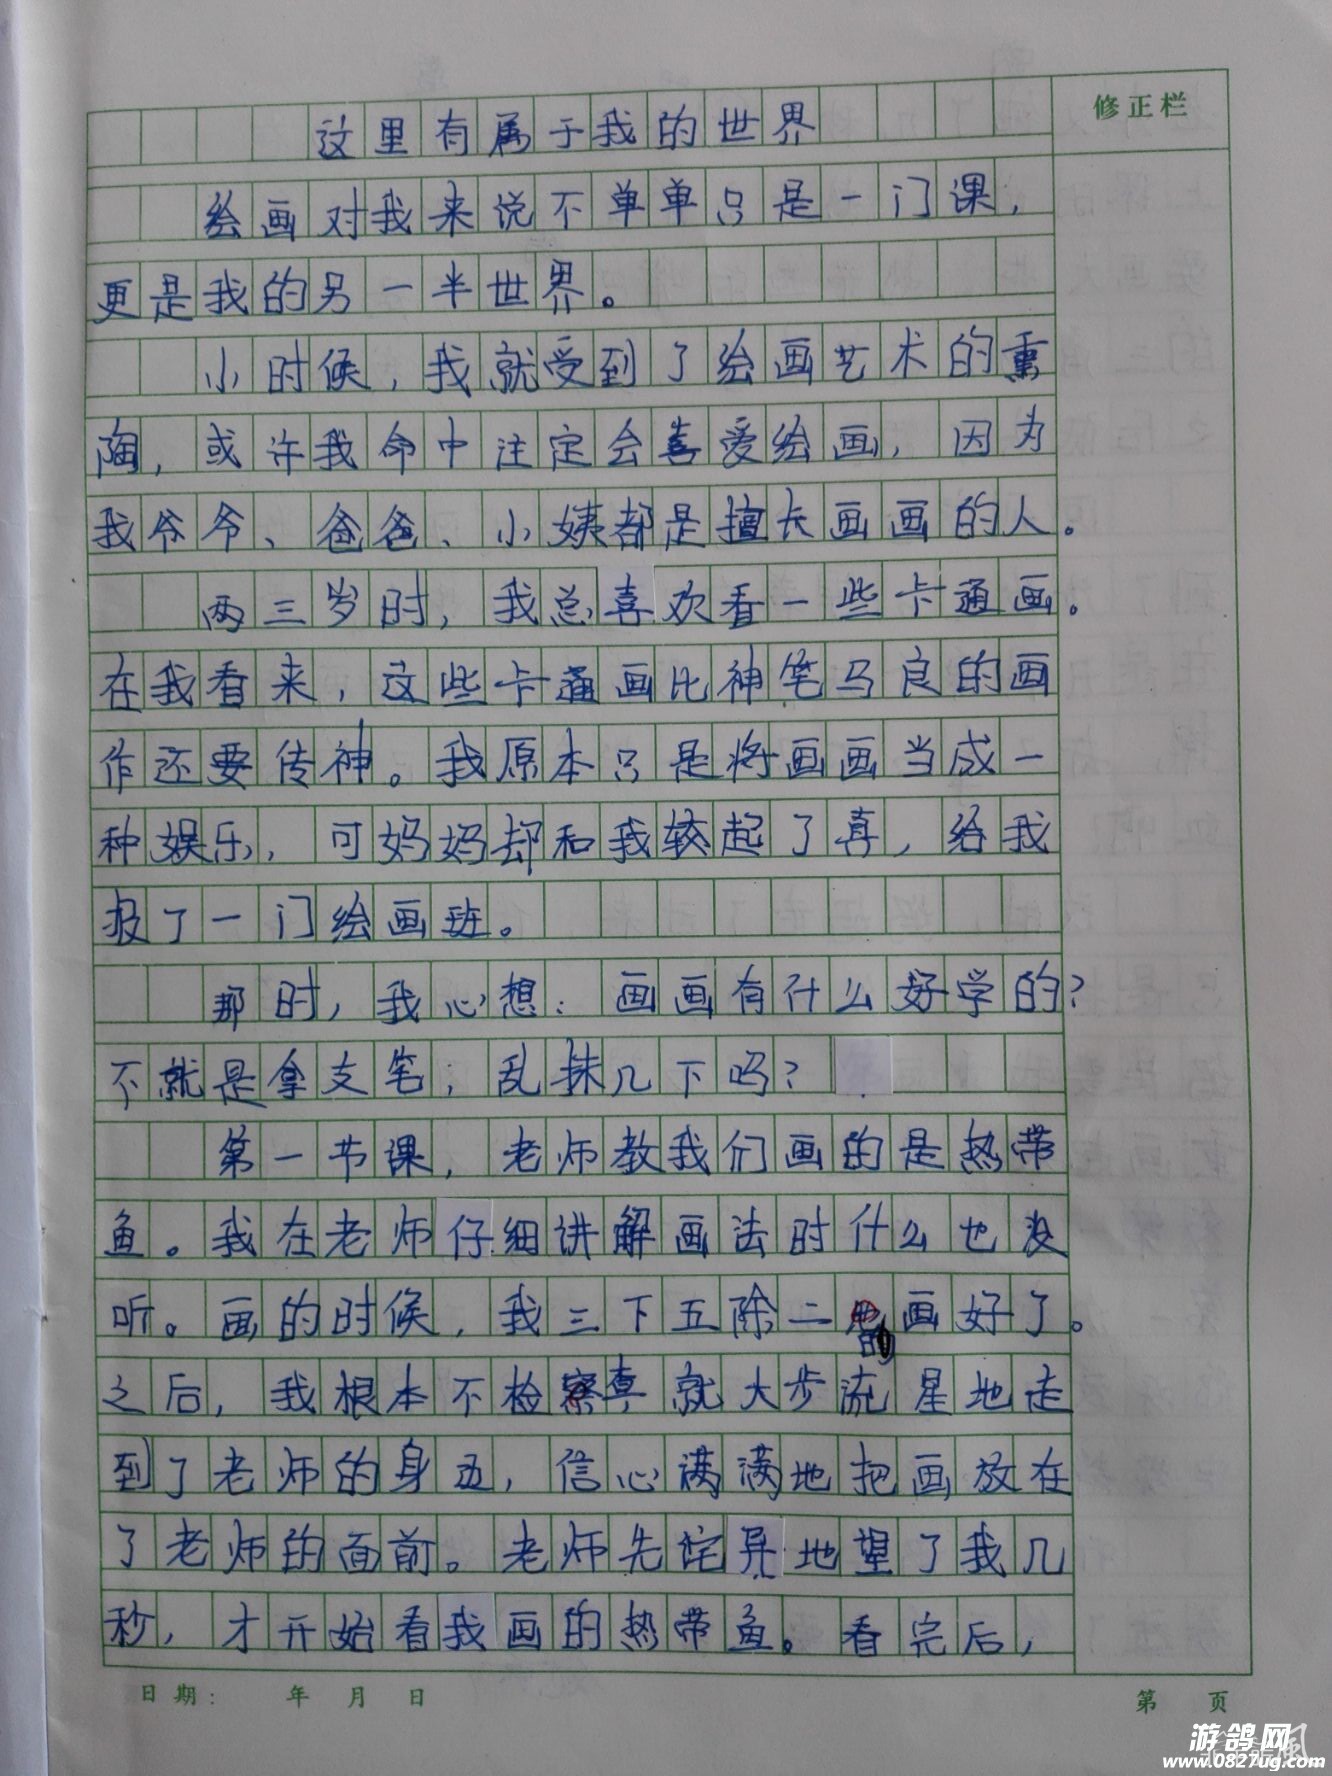 修正栏
这里有属于我的世界
绘画对我来说不单单只是一门课，
更是我的另一半世界。
小时候，我就受到了绘画艺术的熏
陶，或许我命中注定会喜爱绘画，因为
我爷爷、爸爸、小姨都是擅长画画的人。
两三岁时，我总喜欢看一些卡通画。
在我看来，这些卡通画比神笔马良的画
作还要传神。我原本只是将画画当成一
种娱乐，可妈妈却和我较起了真，给我
报了一门绘画班。
那时，我心想：画画有什么好学的？
不就是拿支笔，乱抹几下吗？
第一节课，老师教我们画的是热带
鱼。我在老师仔细讲解画法时什么也没
听。画的时候，我三下五除二的画好了。
之后，我根本不检查就大步流星地走
到了老师的身边，信心满满地把画放在
了老师的面前。老师先诧异地望了我几
秒，才开始看我画的热带鱼。看完后，
日期： 年 月 日
第 页
游鸽网
www.0827ug.com